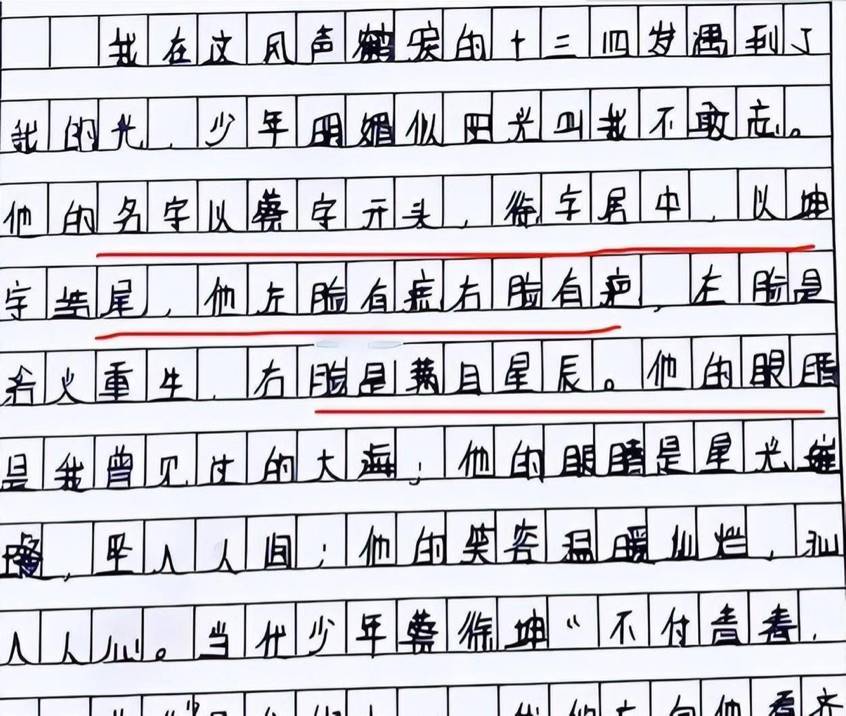 我在这风声鹤唳的十三四岁遇到了
我的光,少年明媚似阳光叫我不敢忘。
他的名字以蔡字开头,徐字居中,以坤
字结尾,他左脸有痣右脸有疤,左脸是
浴火重生,右脸是满目星辰。他的眼睛
是我曾见过的大海;他的眼睛是星光璀
璨,坠入人间;他的笑容温暖灿烂,汕
入人心。当代少年蔡徐坤“不付青春,
他看齐